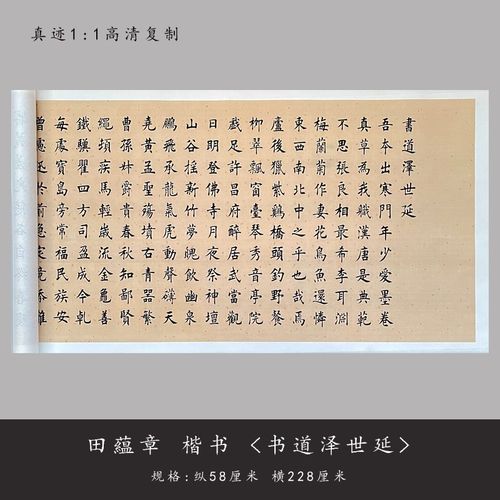 真迹1:1高清复制
書道泽世延
吾本出寒門年少愛墨卷
真草為我職漢唐是典範
不思張良相景希李耳淵
梅蘭菊作妻花鳥魚還憐
東西南北中之乎也哉焉
廬後獵紫鷄橋頭釣野餐
柳翠飄窗臺琴秀音亭院
戲足許昌府醉居武當觀
日明登佛寺月夜祭神壇
山谷摇新竹夢魄飲幽泉
鵬飛承龍氣虎動聲天
堯黄孟聖墳古青器繁
曹孫貴春秋知鄙賢
繩頊疾馬輕歲流金龜善
鐵驥瞿四方司盈成令乹
每處寶島旁常福民族安
田蕴章 楷书 <书道泽世延>
规格:纵58厘米 横228厘米